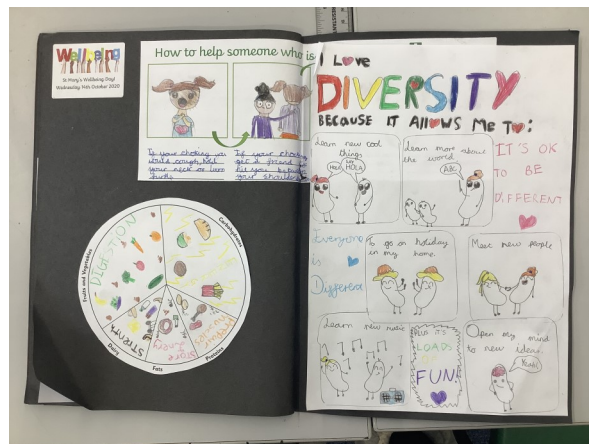 Wellbeing
St Mary's Wellbeing Day!
Wednesday 14th October 2020
How to help someone who is
If your choking you
would cough, hold
your neck or turn
If your chok
get a friend
hit you
your should
Fruits and Vegetables
Carbohydrates
Proteins
Fats
Dairy
DIGESTION
STRENTH
I Love
DIVERSITY
BECAUSE IT AllOWS ME To:
Learn new cool
things
HOLA
Learn more about
the world
ABC
IT'S OK
TO BE
DIFFERENT
Everyone
is
Different
To go on holiday
in my home.
Meet new people
Learn new music
PLUS IT'S
LOADS
OF
FUN!
Open my mind
to new ideas.
Yeah!